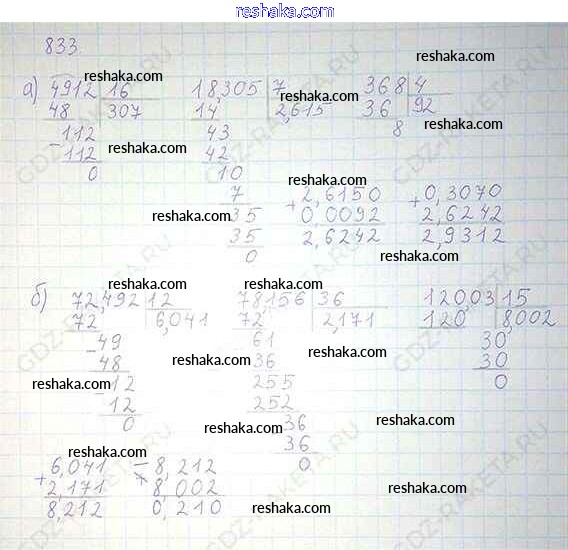 reshaka.com
833.
а) 4912 16 18,305 7 368 4
reshaka.com reshaka.com reshaka.com
48 307 14 2,615 36 92
112 43 8
-112 reshaka.com 42 reshaka.com
0 10
7 reshaka.com
reshaka.com 35 +2,6150 +0,3070
35 0,0092 2,6242
0 2,6242 2,9312
reshaka.com
reshaka.com reshaka.com
б) 72,492 12 78156 36 120,03 15
72 6,041 72 2,171 120 8,002
-49 61 30
-48 reshaka.com 36 reshaka.com 30
reshaka.com -12 255 0
12 252 reshaka.com
0 36
36
reshaka.com reshaka.com 0
+6,041 - 8,212
2,171 8,002
8,212 0,210
reshaka.com reshaka.com reshaka.com
GDZ-RAKETA.RU